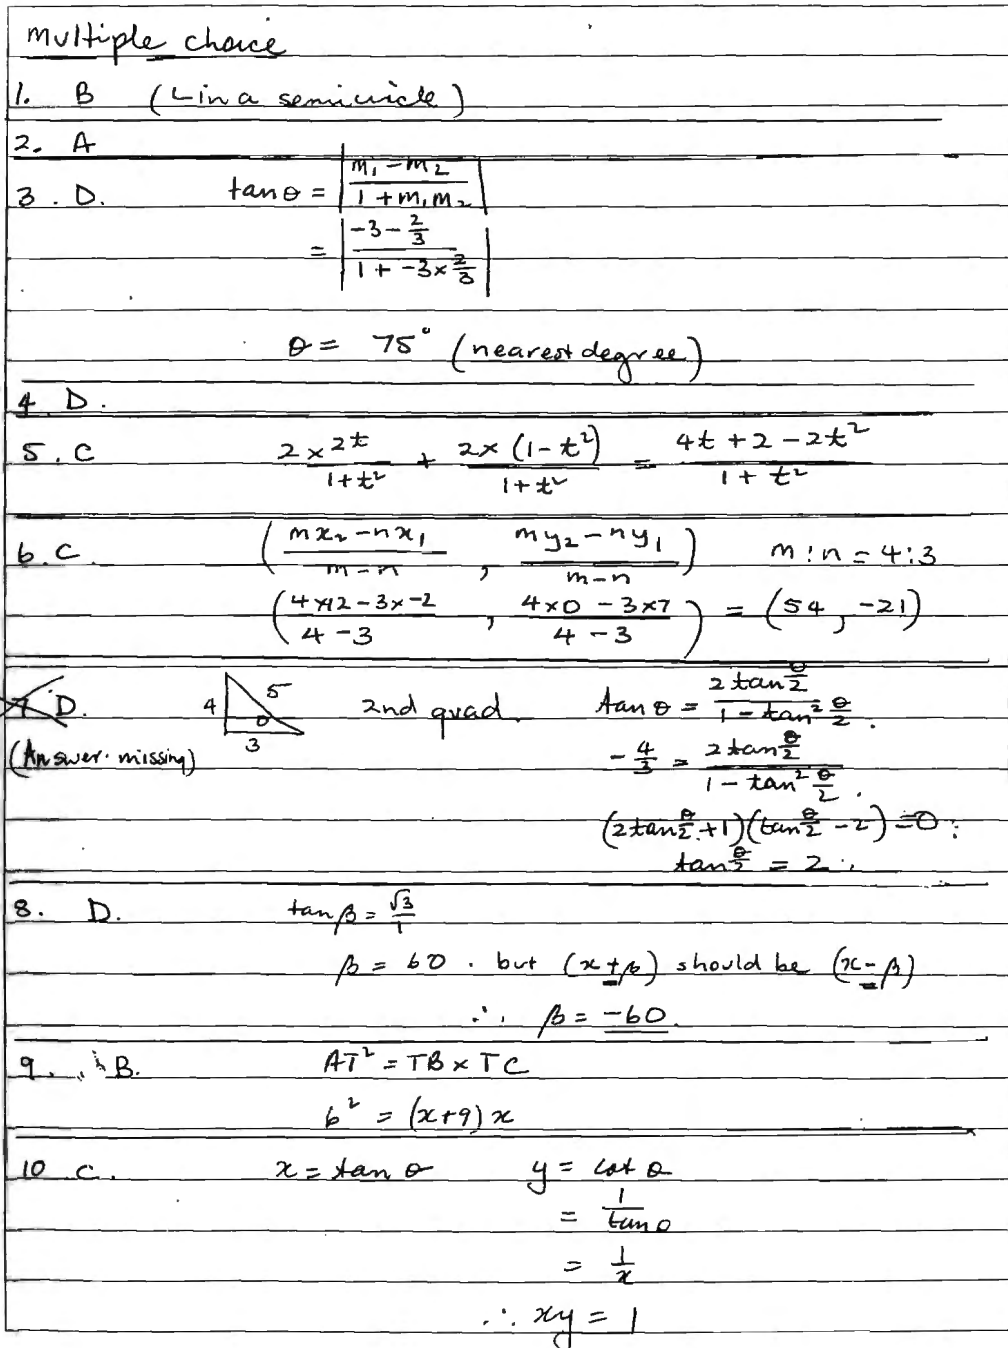 Multiple choice
1. B (∟ in a semicircle)
2. A
3. D. tan θ = |(m₁ - m₂)/(1 + m₁m₂)|
= |(-3 - 2/3)/(1 + -3 × 2/3)|
θ = 75° (nearest degree)
4 D.
5. C (2 × 2t)/(1+t²) + (2 × (1-t²))/(1+t²) = (4t + 2 - 2t²)/(1 + t²)
6. C. ((mx₂ - nx₁)/(m - n), (my₂ - ny₁)/(m - n)) m : n = 4 : 3
((4×12 - 3×-2)/(4 - 3), (4×0 - 3×7)/(4 - 3)) = (54, -21)
7 D. 4 5 θ 3 2nd quad. tan θ = (2 tan θ/2)/(1 - tan² θ/2).
(Answer missing) -4/3 = (2 tan θ/2)/(1 - tan² θ/2).
(2tan θ/2 + 1)(tan θ/2 - 2) = 0
tan θ/2 = 2
8. D. tan β = √3/1
β = 60. but (x + β) should be (x - β)
∴ β = -60.
9. B. AT² = TB × TC
6² = (x+9)x
10 C. x = tan θ y = cot θ
= 1/tan θ
= 1/x
∴ xy = 1